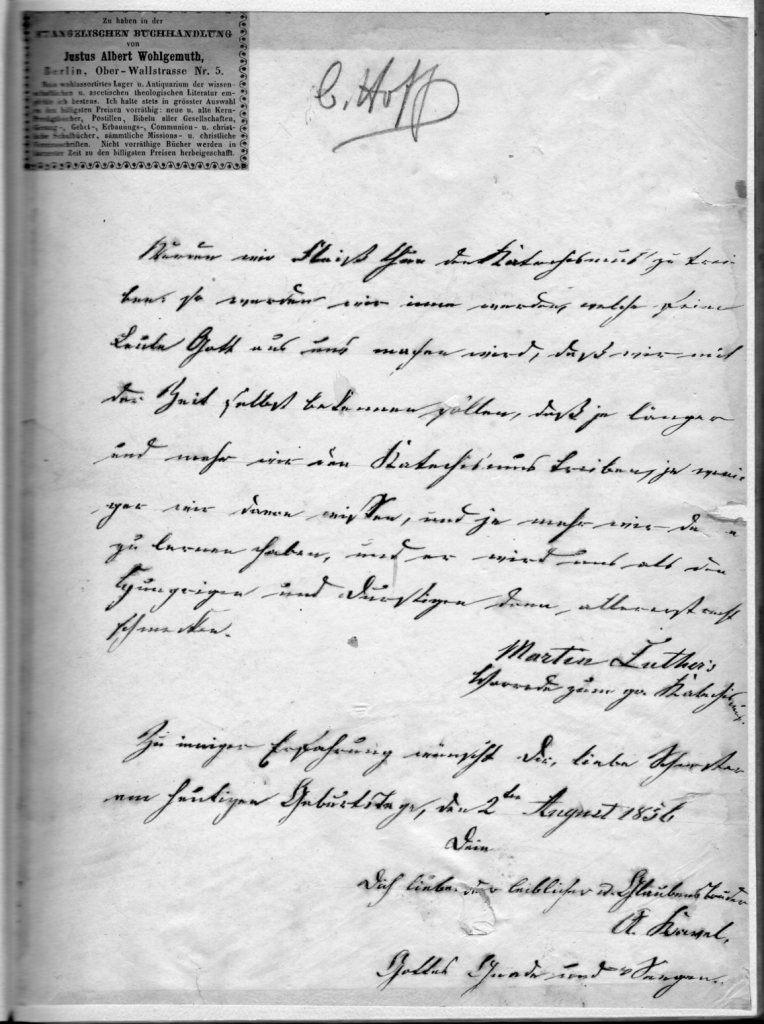 Zu haben in der
EVANGELISCHEN BUCHHANDLUNG
von
Justus Albert Wohlgemuth,
Berlin, Ober-Wallstrasse Nr. 5.
wohlassortirtes Lager u. Antiquarium der wissen-
schaftlichen u. ascetischen theologischen Literatur em-
ich bestens. Ich halte stets in grösster Auswahl
den billigsten Preisen vorräthig: neue u. alte Kern-
Predigtbücher, Postillen, Bibeln aller Gesellschaften,
Gesang-, Gebet-, Erbauungs-, Communion- u. christ-
liche Schulbücher, sämmtliche Missions- u. christliche
Nicht vorräthige Bücher werden in
Zeit zu den billigsten Preisen herbeigeschafft.
C. Hoff
Werden wir Fleiß thun den Katechismus zu trei-
ben, so werden wir inne werden, welche feine
Leute Gott aus uns machen wird, daß wir mit
der Zeit selbst bekennen sollen, daß je länger
und mehr wir den Katechismus treiben, je weni-
ger wir davon wissen, und je mehr wir
zu lernen haben, und er wird uns als den
Hungrigen und Durstigen dann allererst recht
schmecken.
Martin Luther's
Vorrede zum gr. Katechismus.
Zu inniger Erfahrung wünscht Dir, liebe Schwester
am heutigen Geburtstage, den 2ten August 1856
Dein
Dich liebender leiblicher u. Glaubensbruder
A. Kavel,
Gottes Gnade und Seegen.